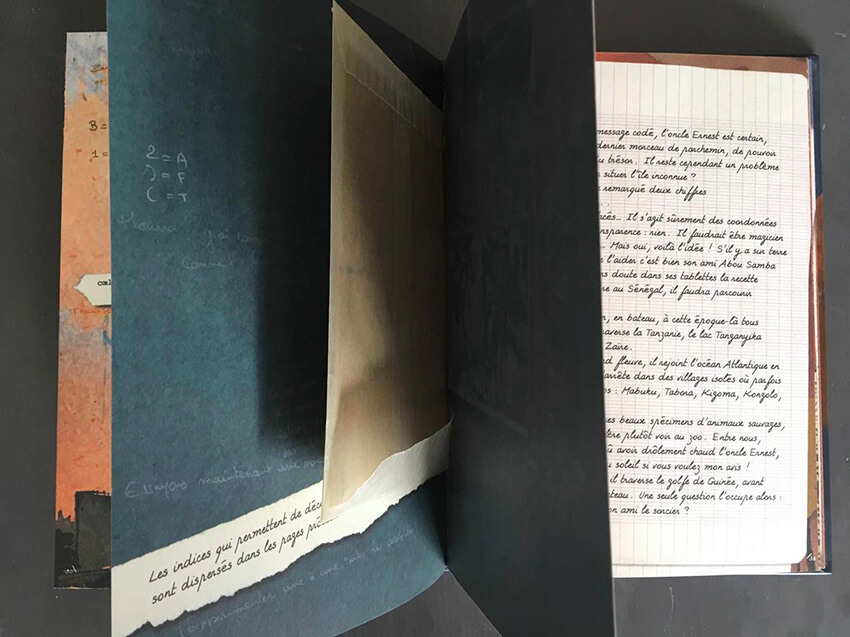 B =
1 =
2 = A
) = F
( = T
Essayons maintenant une
Les indices qui permettent de déco
sont dispersés dans les pages précé
message codé, l'oncle Ernest est certain,
dernier morceau de parchemin, de pouvoir
u trésor. Il reste cependant un problème
situer l'île inconnue ?
remarqué deux chiffres
rcés... Il s'agit sûrement des coordonnées
nsparence : rien. Il faudrait être magicien
... Mais oui, voilà l'idée ! S'il y a sur terre
e l'aider c'est bien son ami Abou Samba
ns doute dans ses tablettes la recette
re au Sénégal, il faudra parcourir
n, en bateau, à cette époque-là tous
raverse la Tanzanie, le lac Tanganyika
Zaïre.
nd fleuve, il rejoint l'océan Atlantique en
arrête dans des villages isolés où parfois
os : Mabuku, Tabora, Kigoma, Kongolo,
res beaux spécimens d'animaux sauvages,
être plutôt voir au zoo. Entre nous,
û avoir drôlement chaud l'oncle Ernest,
u soleil si vous voulez mon avis !
il traverse le golfe de Guinée, avant
ateau. Une seule question l'occupe alors :
on ami le sorcier ?